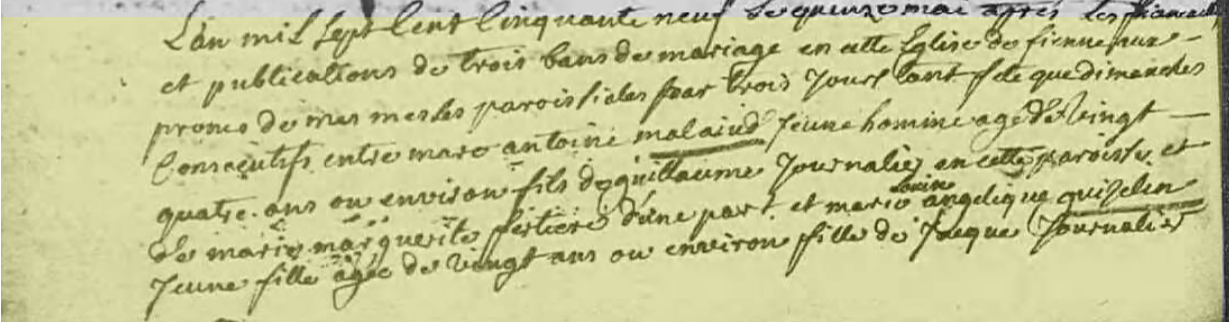 L'an mil sept Cent Cinquante neuf le quinze mai après les fiancailles
et publications de trois bans de mariage en cette Eglise de fiennes aux
prones de mes messes paroissiales par trois Jours tant fete que dimanches
Consecutifs entre marc antoine malaiud Jeune homme agé de vingt
quatre ans ou environ fils de guillaume Journalier en cette paroisse et
de marie marguerite fertiere d'une part et marie Louise angelique quizelin
Jeune fille agée de vingt ans ou environ fille de Jacque Journalier